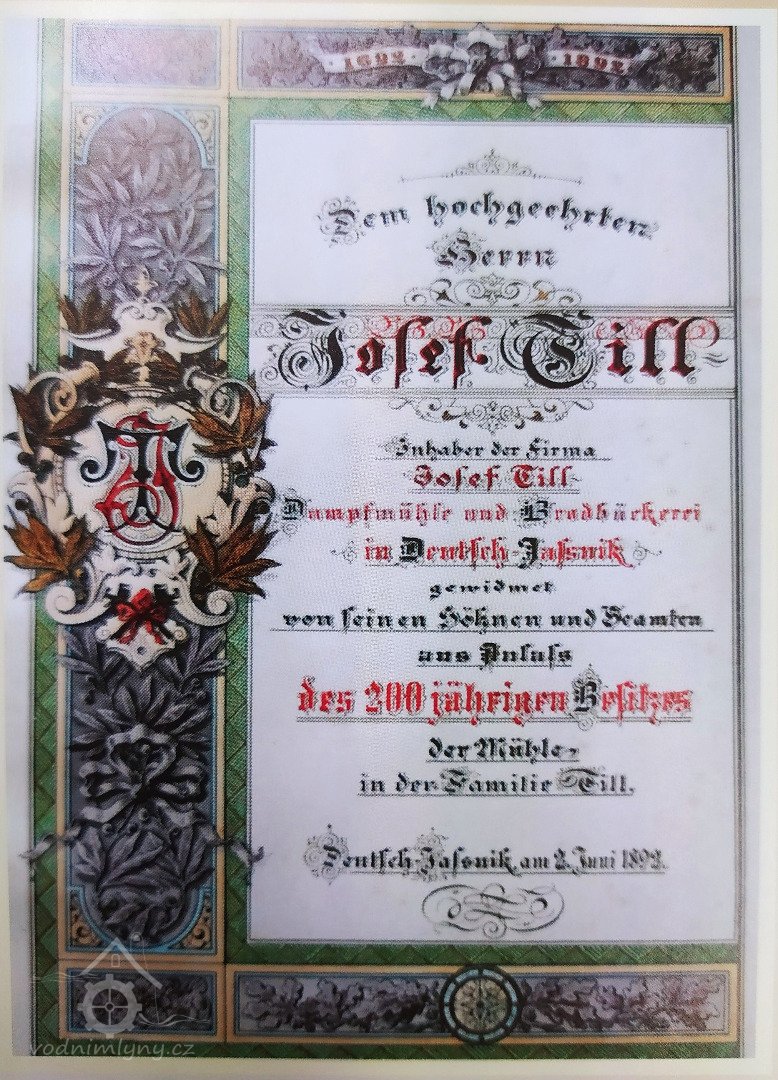 1692 1892
Dem hochgeehrten
Herrn
Josef Till
Inhaber der Firma
Josef Till
Dampfmühle und Brodbäckerei
in Deutsch-Jassnik
gewidmet
von seinen Söhnen und Beamten
aus Anlass
des 200 jährigen Besitzes
der Mühle
in der Familie Till.
Deutsch-Jassnik, am 2. Juni 1892.
JT
vodnimlyny.cz